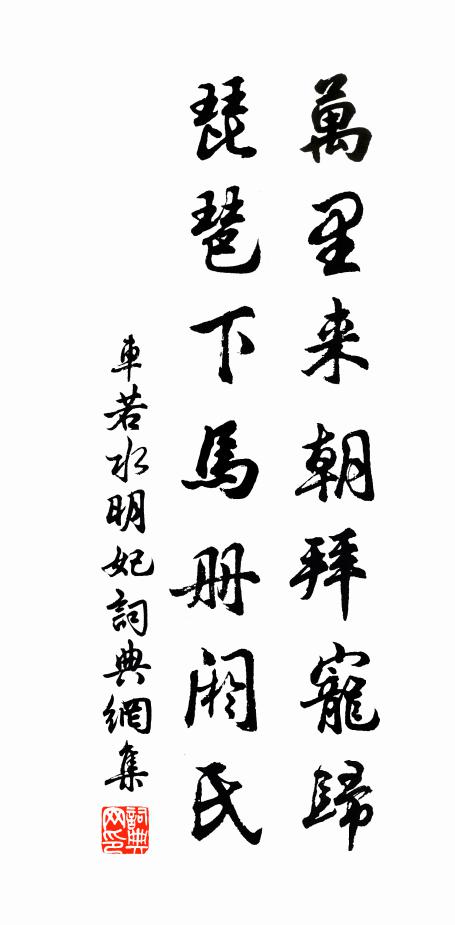 萬里来朝拜寵歸
琵琶下馬册閼氏
車若水明妃詞典網集
詞典网印